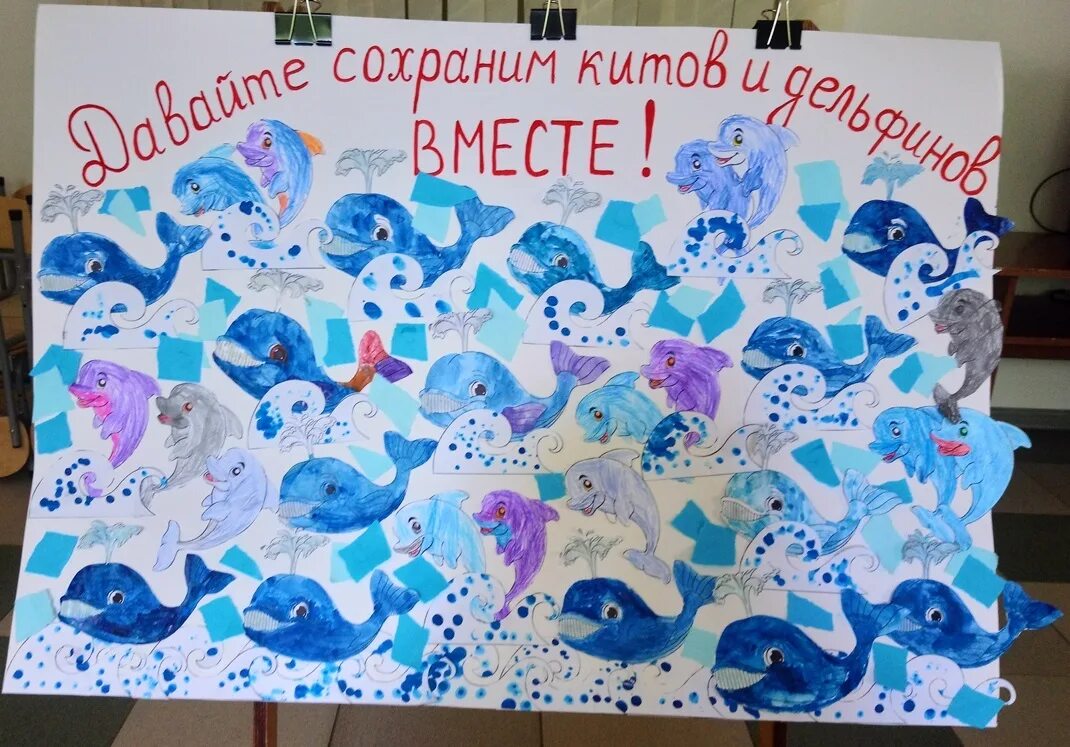 Давайте сохраним китов и дельфинов
ВМЕСТЕ!